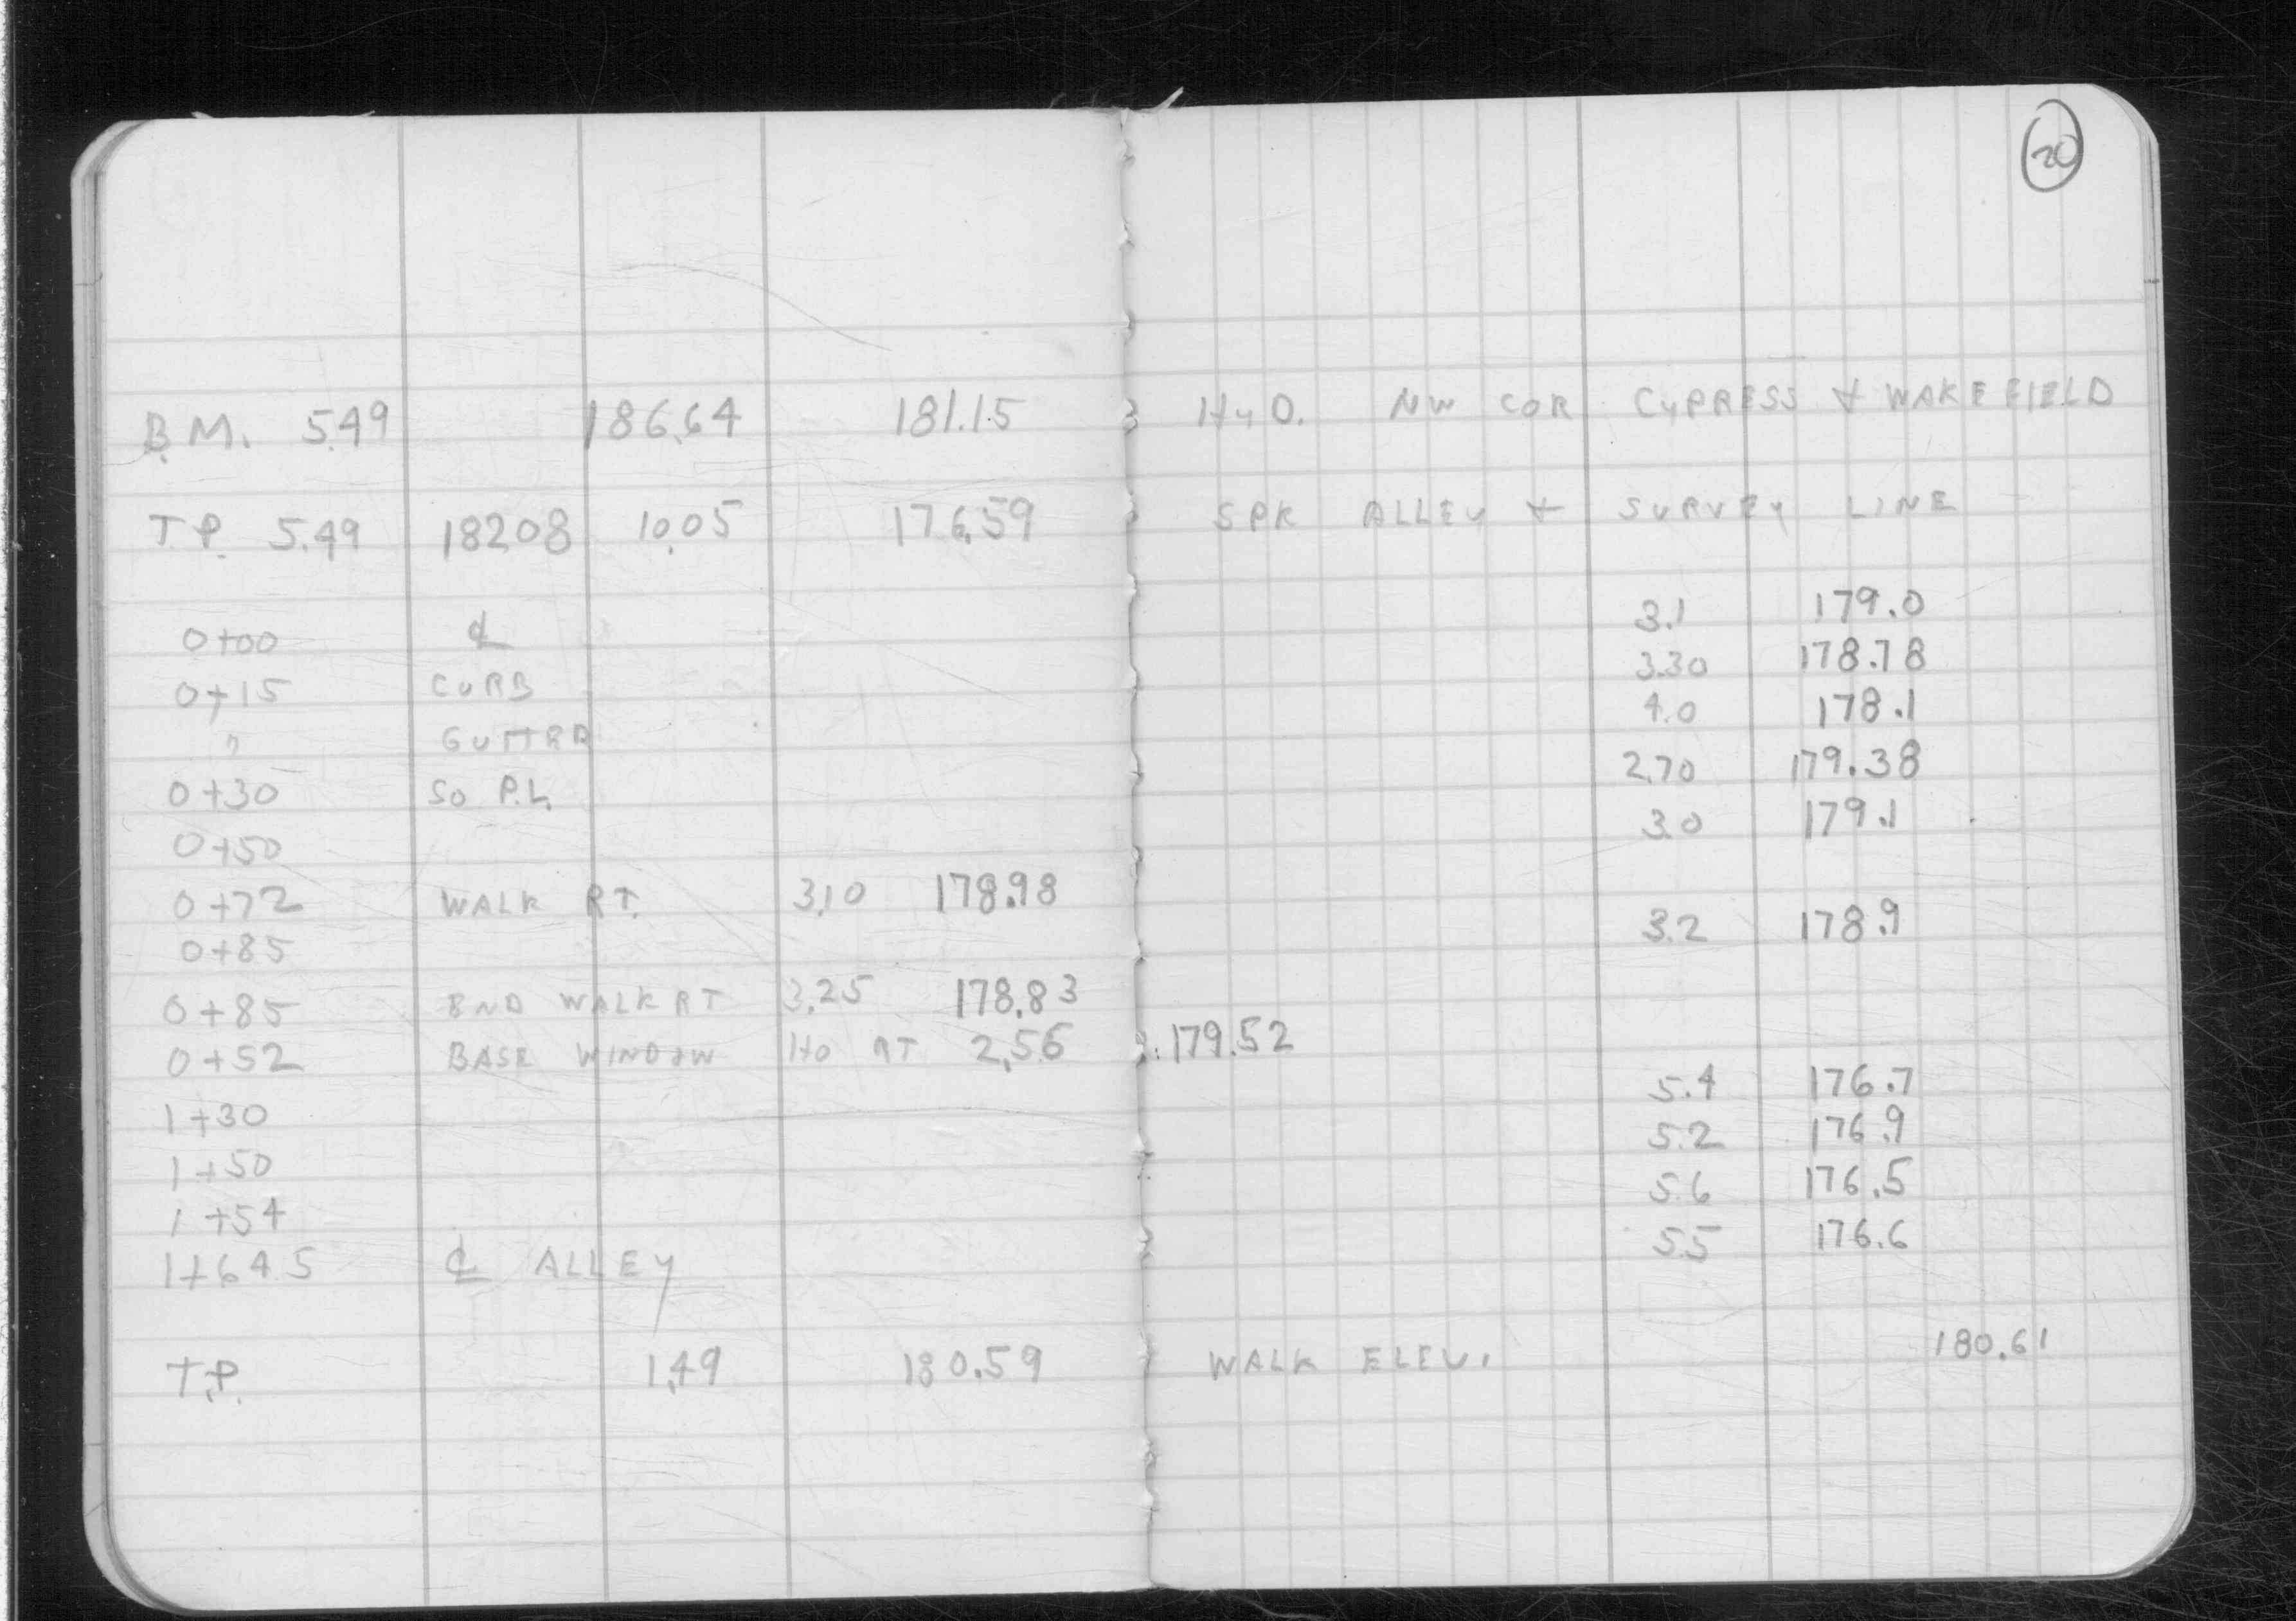 20
B.M. 5.49 186.64 181.15 HyD. NW COR CYPRESS + WAKEFIELD
T.P. 5.49 182.08 10.05 176.59 SPK ALLEY + SURVEY LINE
0+00 ℄ 3.1 179.0
0+15 CURB 3.30 178.78
" GUTTER 4.0 178.1
0+30 SO P.L. 2.70 179.38
0+50 3.0 179.1
0+72 WALK RT. 3.10 178.98
0+85 3.2 178.9
0+85 END WALK RT 3.25 178.83
0+52 BASE WINDOW HO RT 2.56 179.52
1+30 5.4 176.7
1+50 5.2 176.9
1+54 5.6 176.5
1+64.5 ℄ ALLEY 5.5 176.6
T.P. 1.49 180.59 WALK ELEV. 180.61